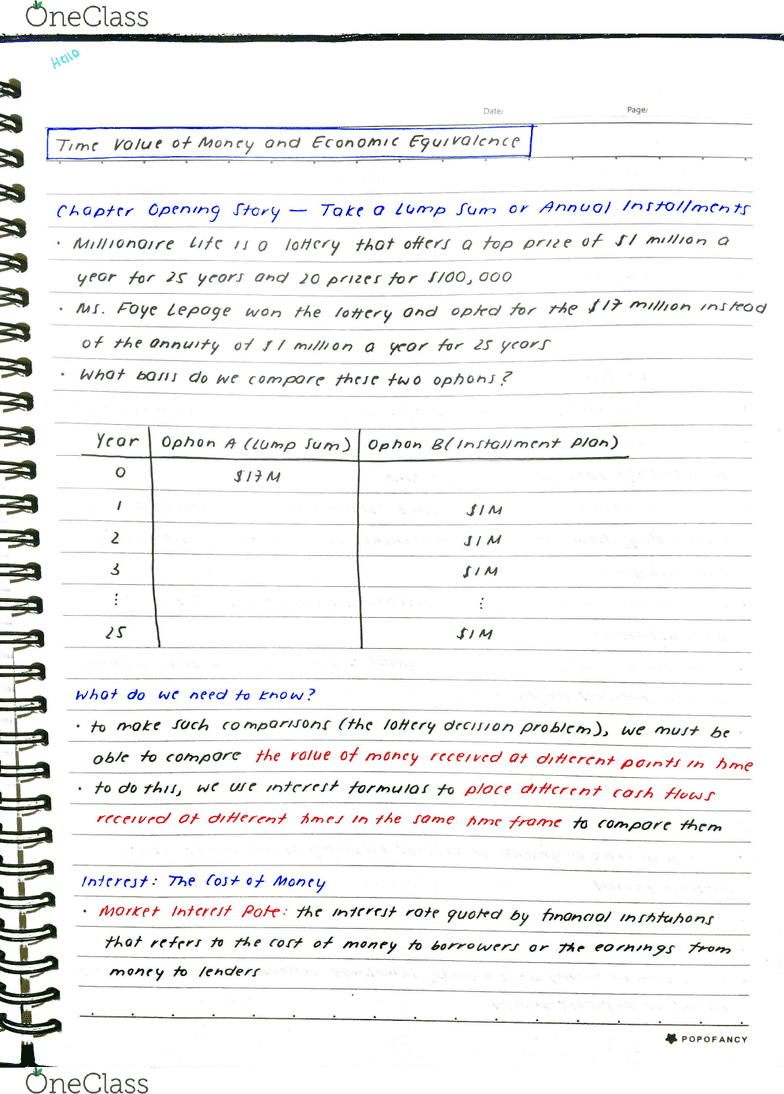 OneClass
Hello
Date/ Page/
Time Value of Money and Economic Equivalence
Chapter Opening Story — Take a Lump Sum or Annual Installments
• Millionaire Life is a lottery that offers a top prize of $1 million a
year for 25 years and 20 prizes for $100,000
• Ms. Faye Lepage won the lottery and opted for the $17 million instead
of the annuity of $1 million a year for 25 years
• What basis do we compare these two options?
Year Option A (Lump Sum) Option B (Installment Plan)
0 $17M
1 $1M
2 $1M
3 $1M
⋮ ⋮
25 $1M
What do we need to know?
• to make such comparisons (the lottery decision problem), we must be
able to compare the value of money received at different points in time
• to do this, we use interest formulas to place different cash flows
received at different times in the same time frame to compare them
Interest: The Cost of Money
• Market Interest Rate: the interest rate quoted by financial institutions
that refers to the cost of money to borrowers or the earnings from
money to lenders
POPOFANCY
OneClass